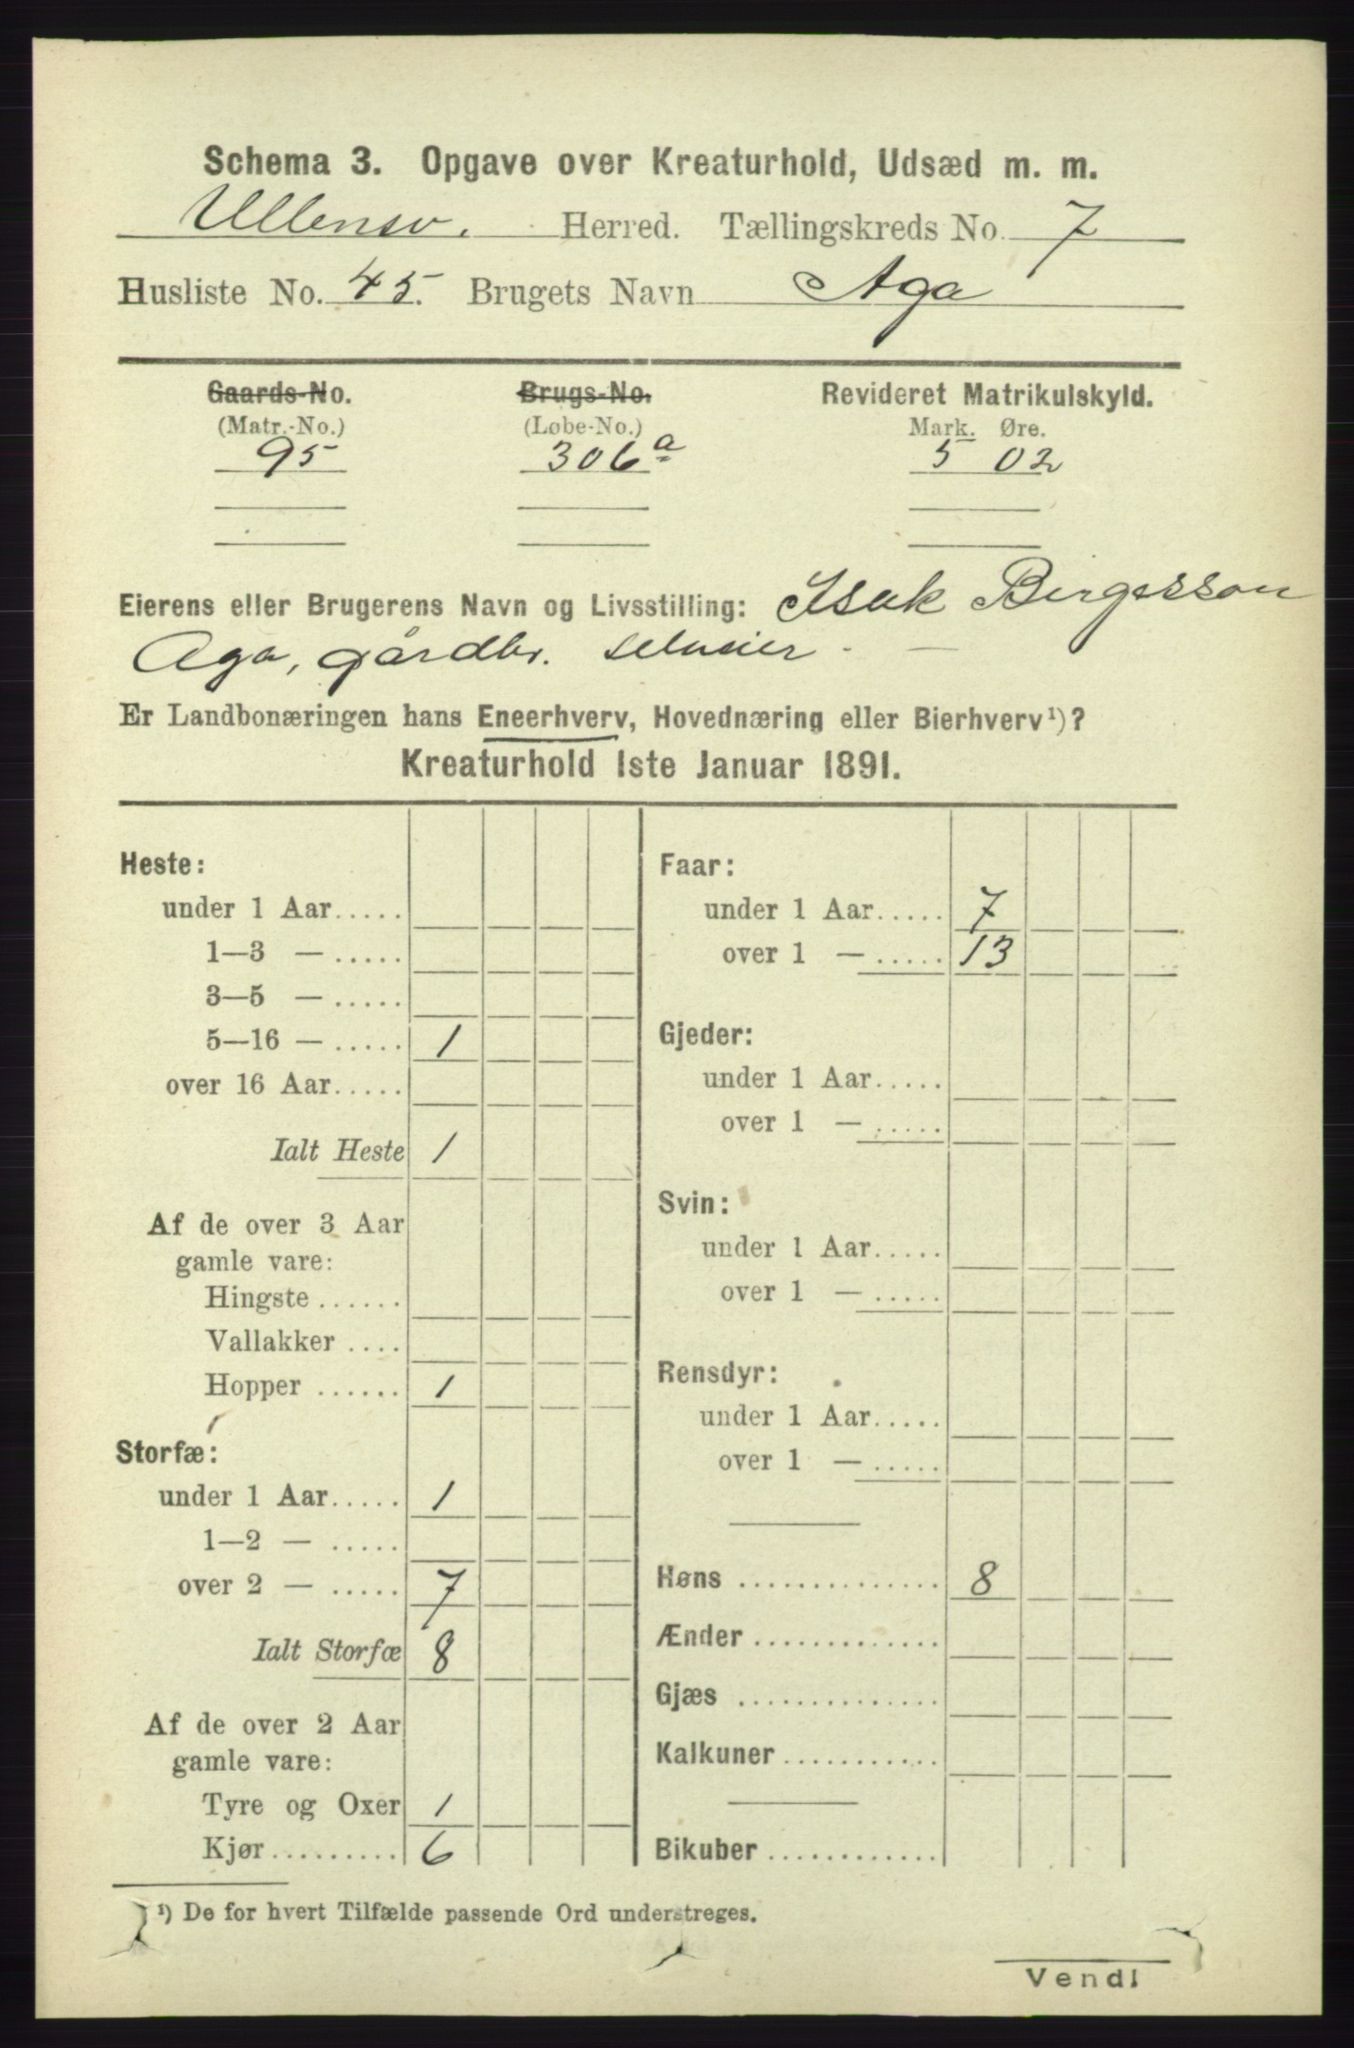 Schema 3. Opgave over Kreaturhold, Udsæd m. m.
Ullensv. Herred. Tællingskreds No. 7
Husliste No. 45. Brugets Navn Aga
Gaards-No. Brugs-No. Revideret Matrikulskyld.
(Matr.-No.) (Løbe-No.) Mark. Øre.
95 306a 5 02
Eierens eller Brugerens Navn og Livsstilling: Isak Birgesson
Aga, gårdbr. selveier.
Er Landbonæringen hans Eneerhverv, Hovednæring eller Bierhverv¹)?
Kreaturhold 1ste Januar 1891.
Heste:
under 1 Aar.....
1—3 — .....
3—5 — .....
5—16 — ..... 1
over 16 Aar.....
Ialt Heste 1
Af de over 3 Aar
gamle vare:
Hingste ......
Vallakker ....
Hopper ...... 1
Storfæ:
under 1 Aar..... 1
1—2 — .....
over 2 — ..... 7
Ialt Storfæ 8
Af de over 2 Aar
gamle vare:
Tyre og Oxer 1
Kjør......... 6
Faar:
under 1 Aar..... 7
over 1 — ..... 13
Gjeder:
under 1 Aar.....
over 1 — .....
Svin:
under 1 Aar.....
over 1 — .....
Rensdyr:
under 1 Aar.....
over 1 — .....
Høns .............. 8
Ænder .............
Gjæs ..............
Kalkuner...........
Bikuber ............
¹) De for hvert Tilfælde passende Ord understreges.
Vend!